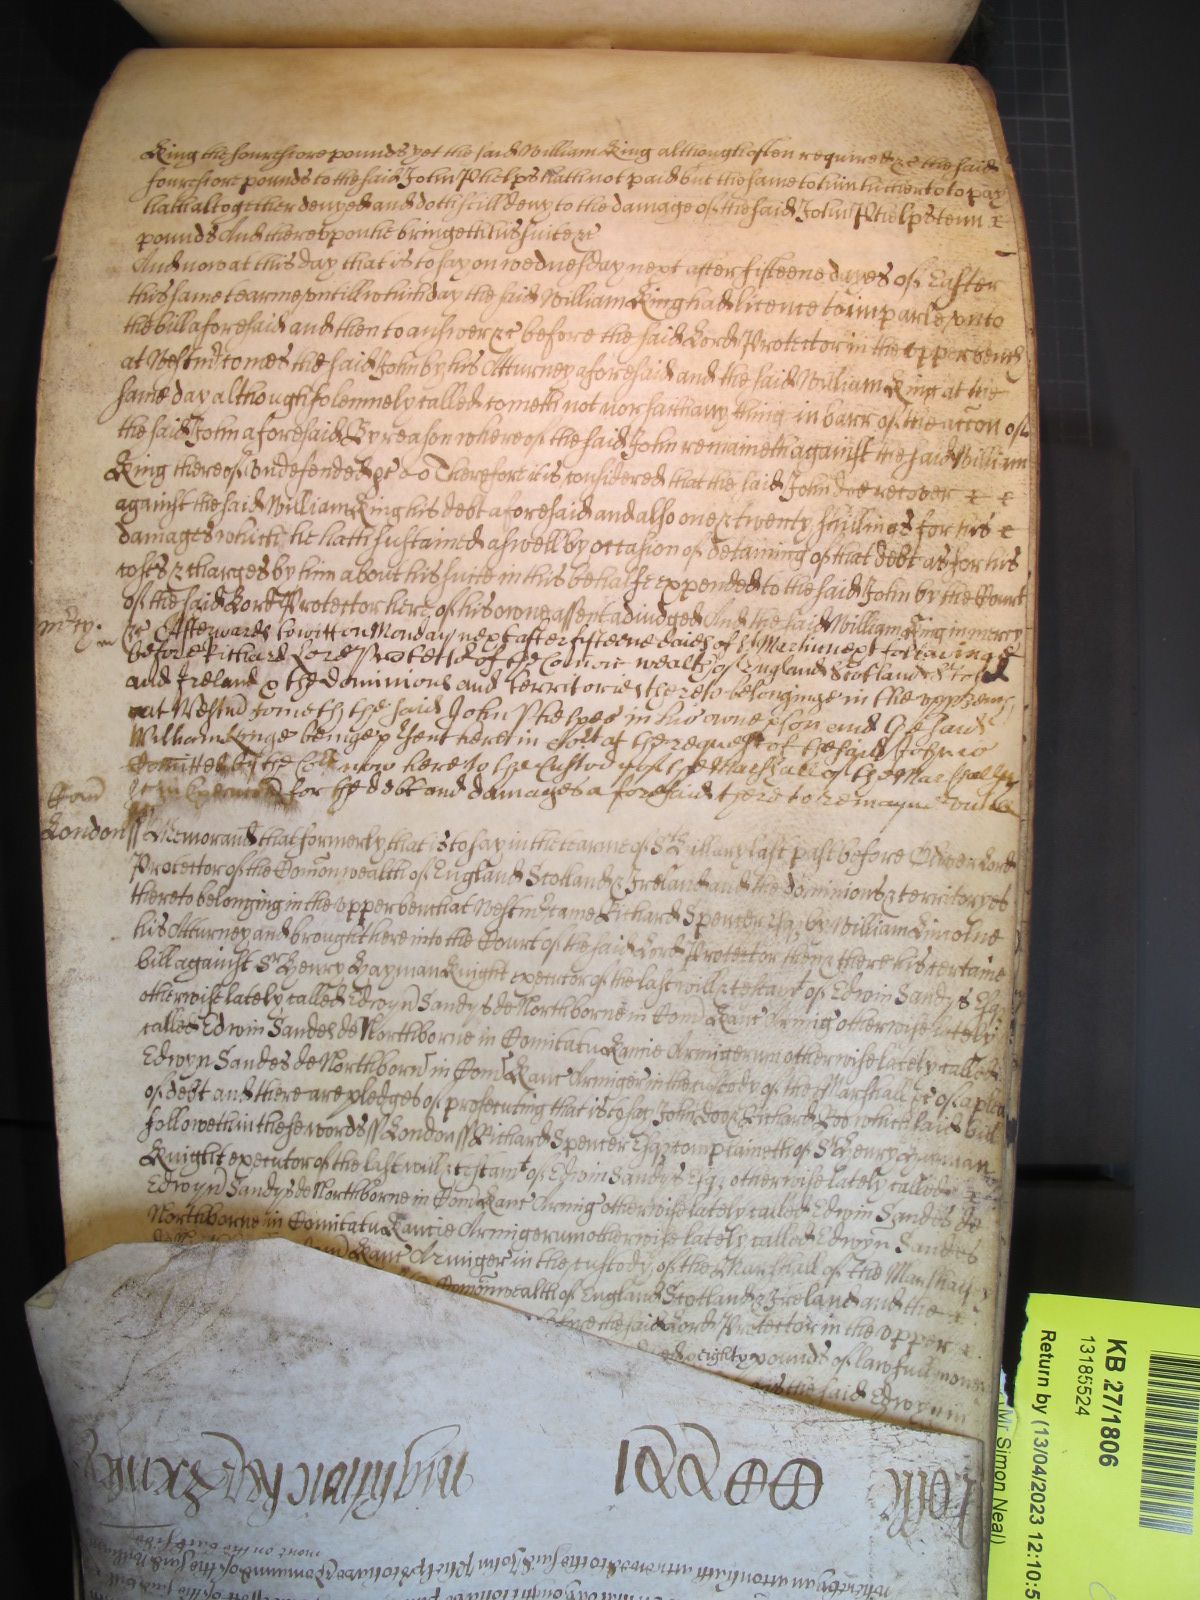 King the fourescore pounds yet the said William King although often required &c the said
fourescore pounds to the said John Phelps hath not paid but the same to him hitherto to pay
hath altogether denyed and doth still deny to the damage of the said John Phelps tenn
pounds And thereupon he bringeth his suite &c
And now at this day that is to say on wednesday next after fifteene dayes of Easter
this same tearme untill which day the said William King had licence to imparle unto
the bill aforesaid and then to answer &c before the said Lord Protector in the upper bench
at Westmr comes the said John by his Atturney aforesaid and the said William King at the
same day although solemnely called cometh not nor saith any thing in barr of the accon of
the said John aforesaid By reason whereof the said John remaineth against the said William
King thereof undefended &c Therefore it is considered that the said John doe recover
against the said William King his debt aforesaid and also one & twenty shillings for his
damages which he hath sustained aswell by occasion of detaining of that debt as for his
costs & charges by him about his suite in this behalfe expended to the said John by the Court
of the said Lord Protector here of his owne assent adiudged And the said William King in mercy
mrcy.
&c Afterwards towitt on Monday next after fifteene daies of St Martin next following
before Richard Lord Protector of the Comon wealth of England Scotland
and Ireland & the dominions and territories thereto belonginge in the upper
att Westmr cometh the said John Phelpes in his owne pson and the said
William Kinge beinge psent here in Court at the request of the said John is
Comitted by the Court now here to the Custody of the Marshall of the Marshalsey
in execucon for the debt and damages aforesaid there to remayne untill
&c
London ss Memorand that formerly that is to say in the tearme of St Hillary last past before Oliver Lord
Protector of the Comonwealth of England Scotland & Ireland and the dominions & territoryes
thereto belonging in the upper bench at Westmr came Richard Spencer Esqr by William Lincolne
his Atturney and brought here into the Court of the said Lord Protector then & there his certaine
bill against Sr Henry Hayman Knight executor of the last will & testamt of Edwin Sandys Esqr
otherwise lately called Edwyn Sandys de Northborne in Com Kanc Armig otherwise lately
called Edwin Sandes de Northborne in Comitatu Kancie Armigerum otherwise lately called
Edwyn Sandes de Northborn in Com Kanc Armiger in the custody of the Marshall &c of a plea
of debt and there are pledges of prosecuting that is to say John Doo & Richard Roo which said bill
followeth in these words ss London ss Richard Spencer Esqr complaineth of Sr Henry Hayman
Knight executor of the last will & testamt of Edwin Sandys Esqr otherwise lately called
Edwyn Sandys de Northborne in Com Kanc Armig otherwise lately called Edwin Sandes de
Northborne in Comitatu Kancie Armigerum otherwise lately called Edwyn Sandes
Kanc Armiger in the custody of the Marshall of the Marshal
Comonwealth of England Scotland & Ireland and the
before the said Lord Protector in the upper
eighty pounds of lawfull money
the said Edwyn in
KB 27/1806
13185524
Return by (13/04/2023 12:10:5
Mr Simon Neal)